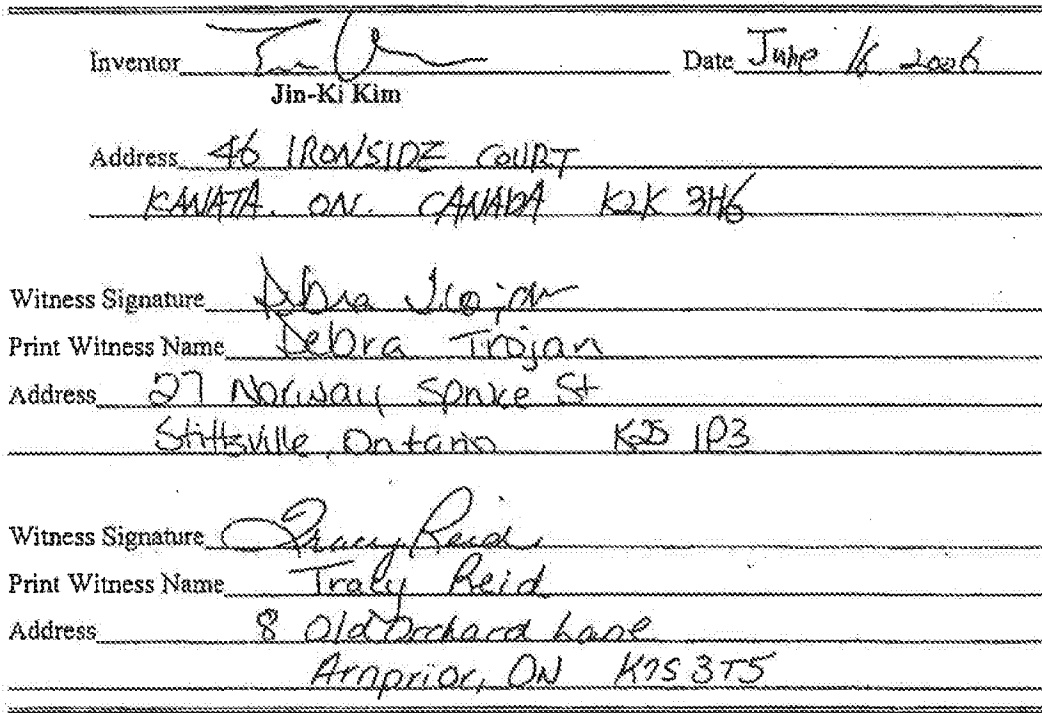 Inventor Date June 16 2006
Jin-Ki Kim
Address 46 IRONSIDE COURT
KANATA. ON. CANADA K2K 3H6
Witness Signature Debra Trojan
Print Witness Name Debra Trojan
Address 27 Norway Spruce St
Stittsville, Ontario K2S 1P3
Witness Signature Tracy Reid
Print Witness Name Tracy Reid
Address 8 Old Orchard Lane
Arnprior, ON K7S 3T5